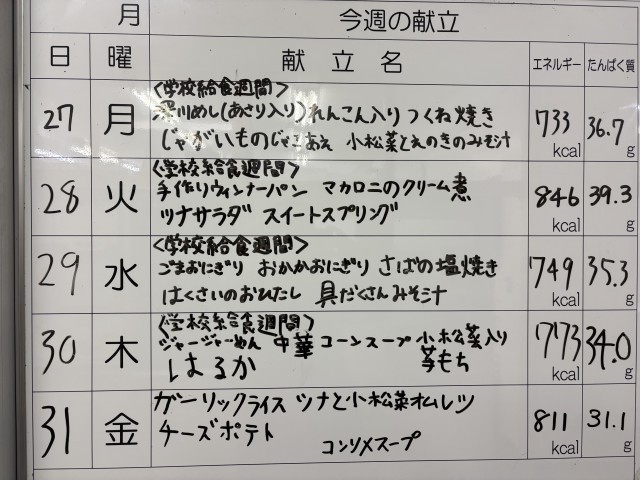 月 今週の献立
日 曜 献立名 エネルギー たんぱく質
<学校給食週間>
27 月 深川めし(あさり入り) れんこん入りつくね焼き 733 kcal 36.7 g
じゃがいものじゃこあえ 小松菜とえのきのみそ汁
<学校給食週間>
28 火 手作りウィンナーパン マカロニのクリーム煮 846 kcal 39.3 g
ツナサラダ スイートスプリング
<学校給食週間>
29 水 ごまおにぎり おかかおにぎり さばの塩焼き 749 kcal 35.3 g
はくさいのおひたし 具だくさんみそ汁
<学校給食週間>
30 木 ジャージャーめん 中華コーンスープ 小松菜入り芋もち 773 kcal 34.0 g
はるか
31 金 ガーリックライス ツナと小松菜オムレツ 811 kcal 31.1 g
チーズポテト コンソメスープ